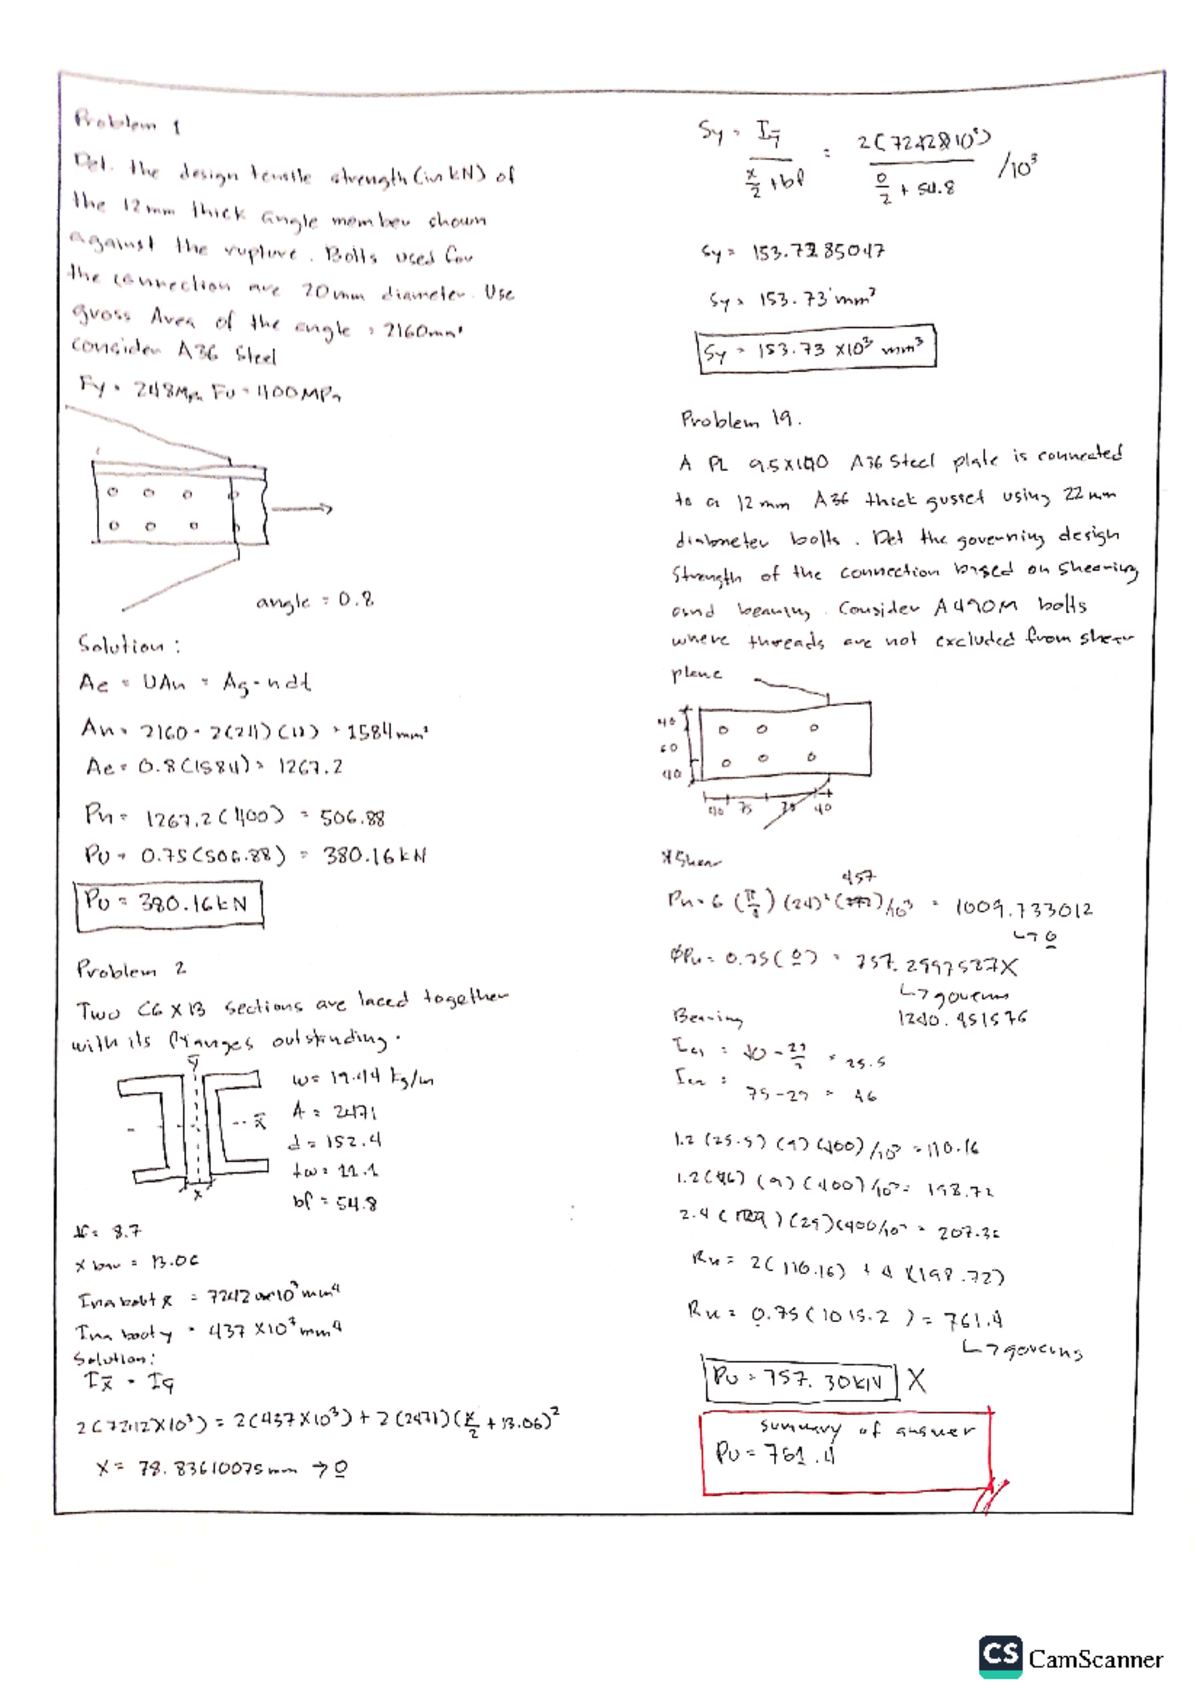 Problem 1
Det. the design tensile strength (in kN) of
the 12mm thick angle member shown
against the rupture. Bolts used for
the connection are 20mm diameter. Use
gross Area of the angle = 2160mm²
consider A36 Steel
Fy = 248MPa Fu = 400MPa
angle = 0.8
Solution:
Ae = UAn = Ag - ndt
An = 2160 - 2(24)(12) = 1584mm²
Ae = 0.8(1584) = 1267.2
Pn = 1267.2(400) = 506.88
PU = 0.75(506.88) = 380.16kN
PU = 380.16kN
Problem 2
Two C6x13 sections are laced together
with its flanges outstanding.
y
w = 19.44 kg/m
A = 2471
x̄
d = 152.4
tw = 11.1
x
bf = 54.8
tf = 8.7
x bar = 13.06
= 437 x10³mm⁴
Solution:
Ix̄ = Iȳ
2(7242x10³) = 2(437x10³) + 2(2471)(x/2 + 13.06)²
X = 78.83610075mm → O
Sy = Iȳ / (x/2 + bf) = 2(7242x10³) / (O/2 + 54.8) /10³
Sy = 153.7285047
Sy = 153.73 mm³
Sy = 153.73 x10³ mm³
Problem 19.
A PL 9.5x140 A36 Steel plate is connected
to a 12mm A36 thick gusset using 22mm
diabmeter bolts. Det the governing design
Strength of the connection based on Shearing
and bearing. Consider A490M bolts
where threads are not excluded from shear
plane
40
60
40
40 75 75 40
*Shear
457
/10³ = 1009.733012
↳ O
ϕPn = 0.75(O) = 757.2997527X
↳ governs
Bearing
= 25.5
75-29 = 46
1.2(25.5)(9)(400)/10³ = 110.16
1.2(46)(9)(400)/10³ = 198.72
= 207.36
Rn = 2(110.16) + 4(198.72)
Ru = 0.75(1015.2) = 761.4
↳ governs
PU = 757.30kN X
summary of answer
PU = 761.4
CS CamScanner